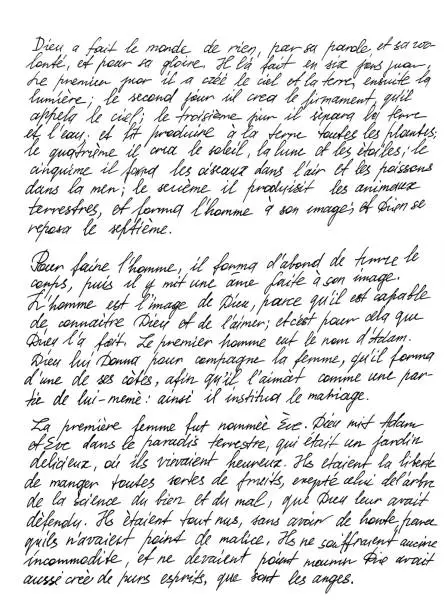 Dieu a fait le monde de rien, par sa parole, et sa vo-
lonté, et pour sa gloire. Il l'a fait en six jours
le premier jour il a créé le ciel et la terre, ensuite la
lumière; le second jour il crea le firmament, qu'il
appela le ciel; le troisième jour il sépara la terre
et l'eau, et fit produire à la terre toutes les plantes;
le quatrième il crea le soleil, la lune et les étoiles; le
cinquième il forma les oiseaux dans l'air et les poissons
dans la mer; le sixième il produisit les animaux
terrestres, et forma l'homme à son image, et Dieu se
reposa le septième.
Pour faire l'homme, il forma d'abord de terre le
corps, puis il y mit une ame faite à son image.
L'homme est l'image de Dieu, parce qu'il est capable
de connaitre Dieu et de l'aimer; et c'est pour cela que
Dieu l'a fait. Le premier homme eut le nom d'Adam.
Dieu lui donna pour compagne la femme, qu'il forma
d'une de ses côtes, afin qu'il l'aimât comme une par-
tie de lui-meme: ainsi il institua le mariage.
La première femme fut nommée Ève. Dieu mit Adam
et Eve dans le paradis terrestre, qui était un jardin
delicieux, où ils vivaient heureux. Ils etaient la liberte
de manger toutes sortes de fruits, exepté celui de l'arbre
de la science du bien et du mal, que Dieu leur avait
défendu. Ils étaient tout nus, sans avoir de honte, parce
qu'ils n'avaient point de malice. Ils ne souffraient aucune
incommodite, et ne devaient point mourir. Dieu avait
aussi créé de purs esprits, que sont les anges.